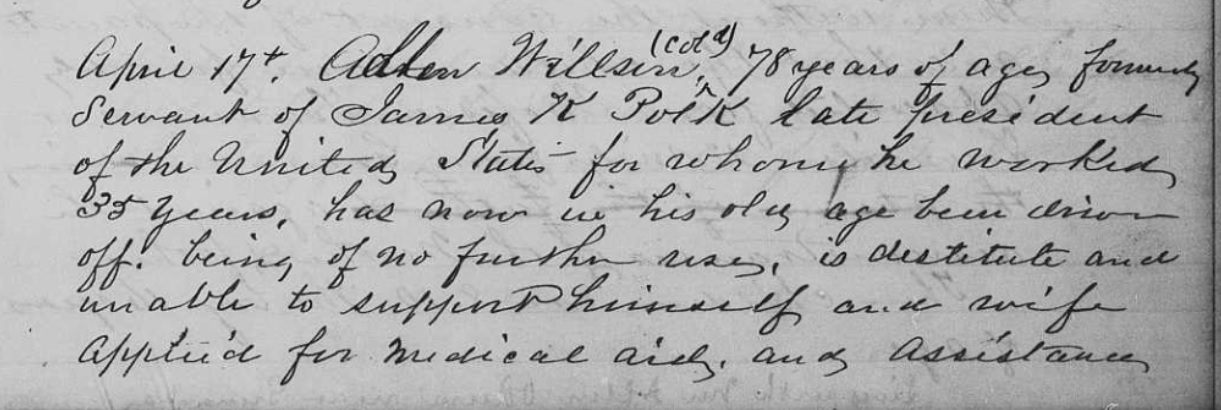 April 17th. Allen Willson, (cold) 78 years of age, formerly
Servant of James K Polk late president
of the United States for whom he worked
35 years, has now in his old age been driven
off. being of no further use, is destitute and
unable to support himself and wife
applied for medical aid, and assistance